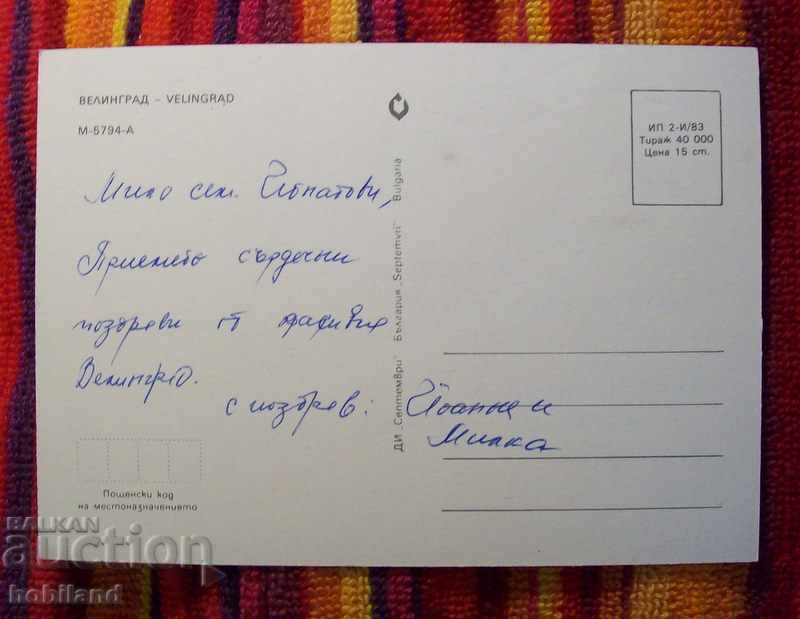 ВЕЛИНГРАД – VELINGRAD
М-5794-А
Мило сем.
Приемете сърдечни
поздрави от
Велинград.
с поздрав:
Милка
ДИ „Септември" България „Septemvri" Bulgaria
ИП 2-И/83
Тираж 40 000
Цена 15 ст.
Пощенски код
на местоназначението
BALKAN
auction
hobiland